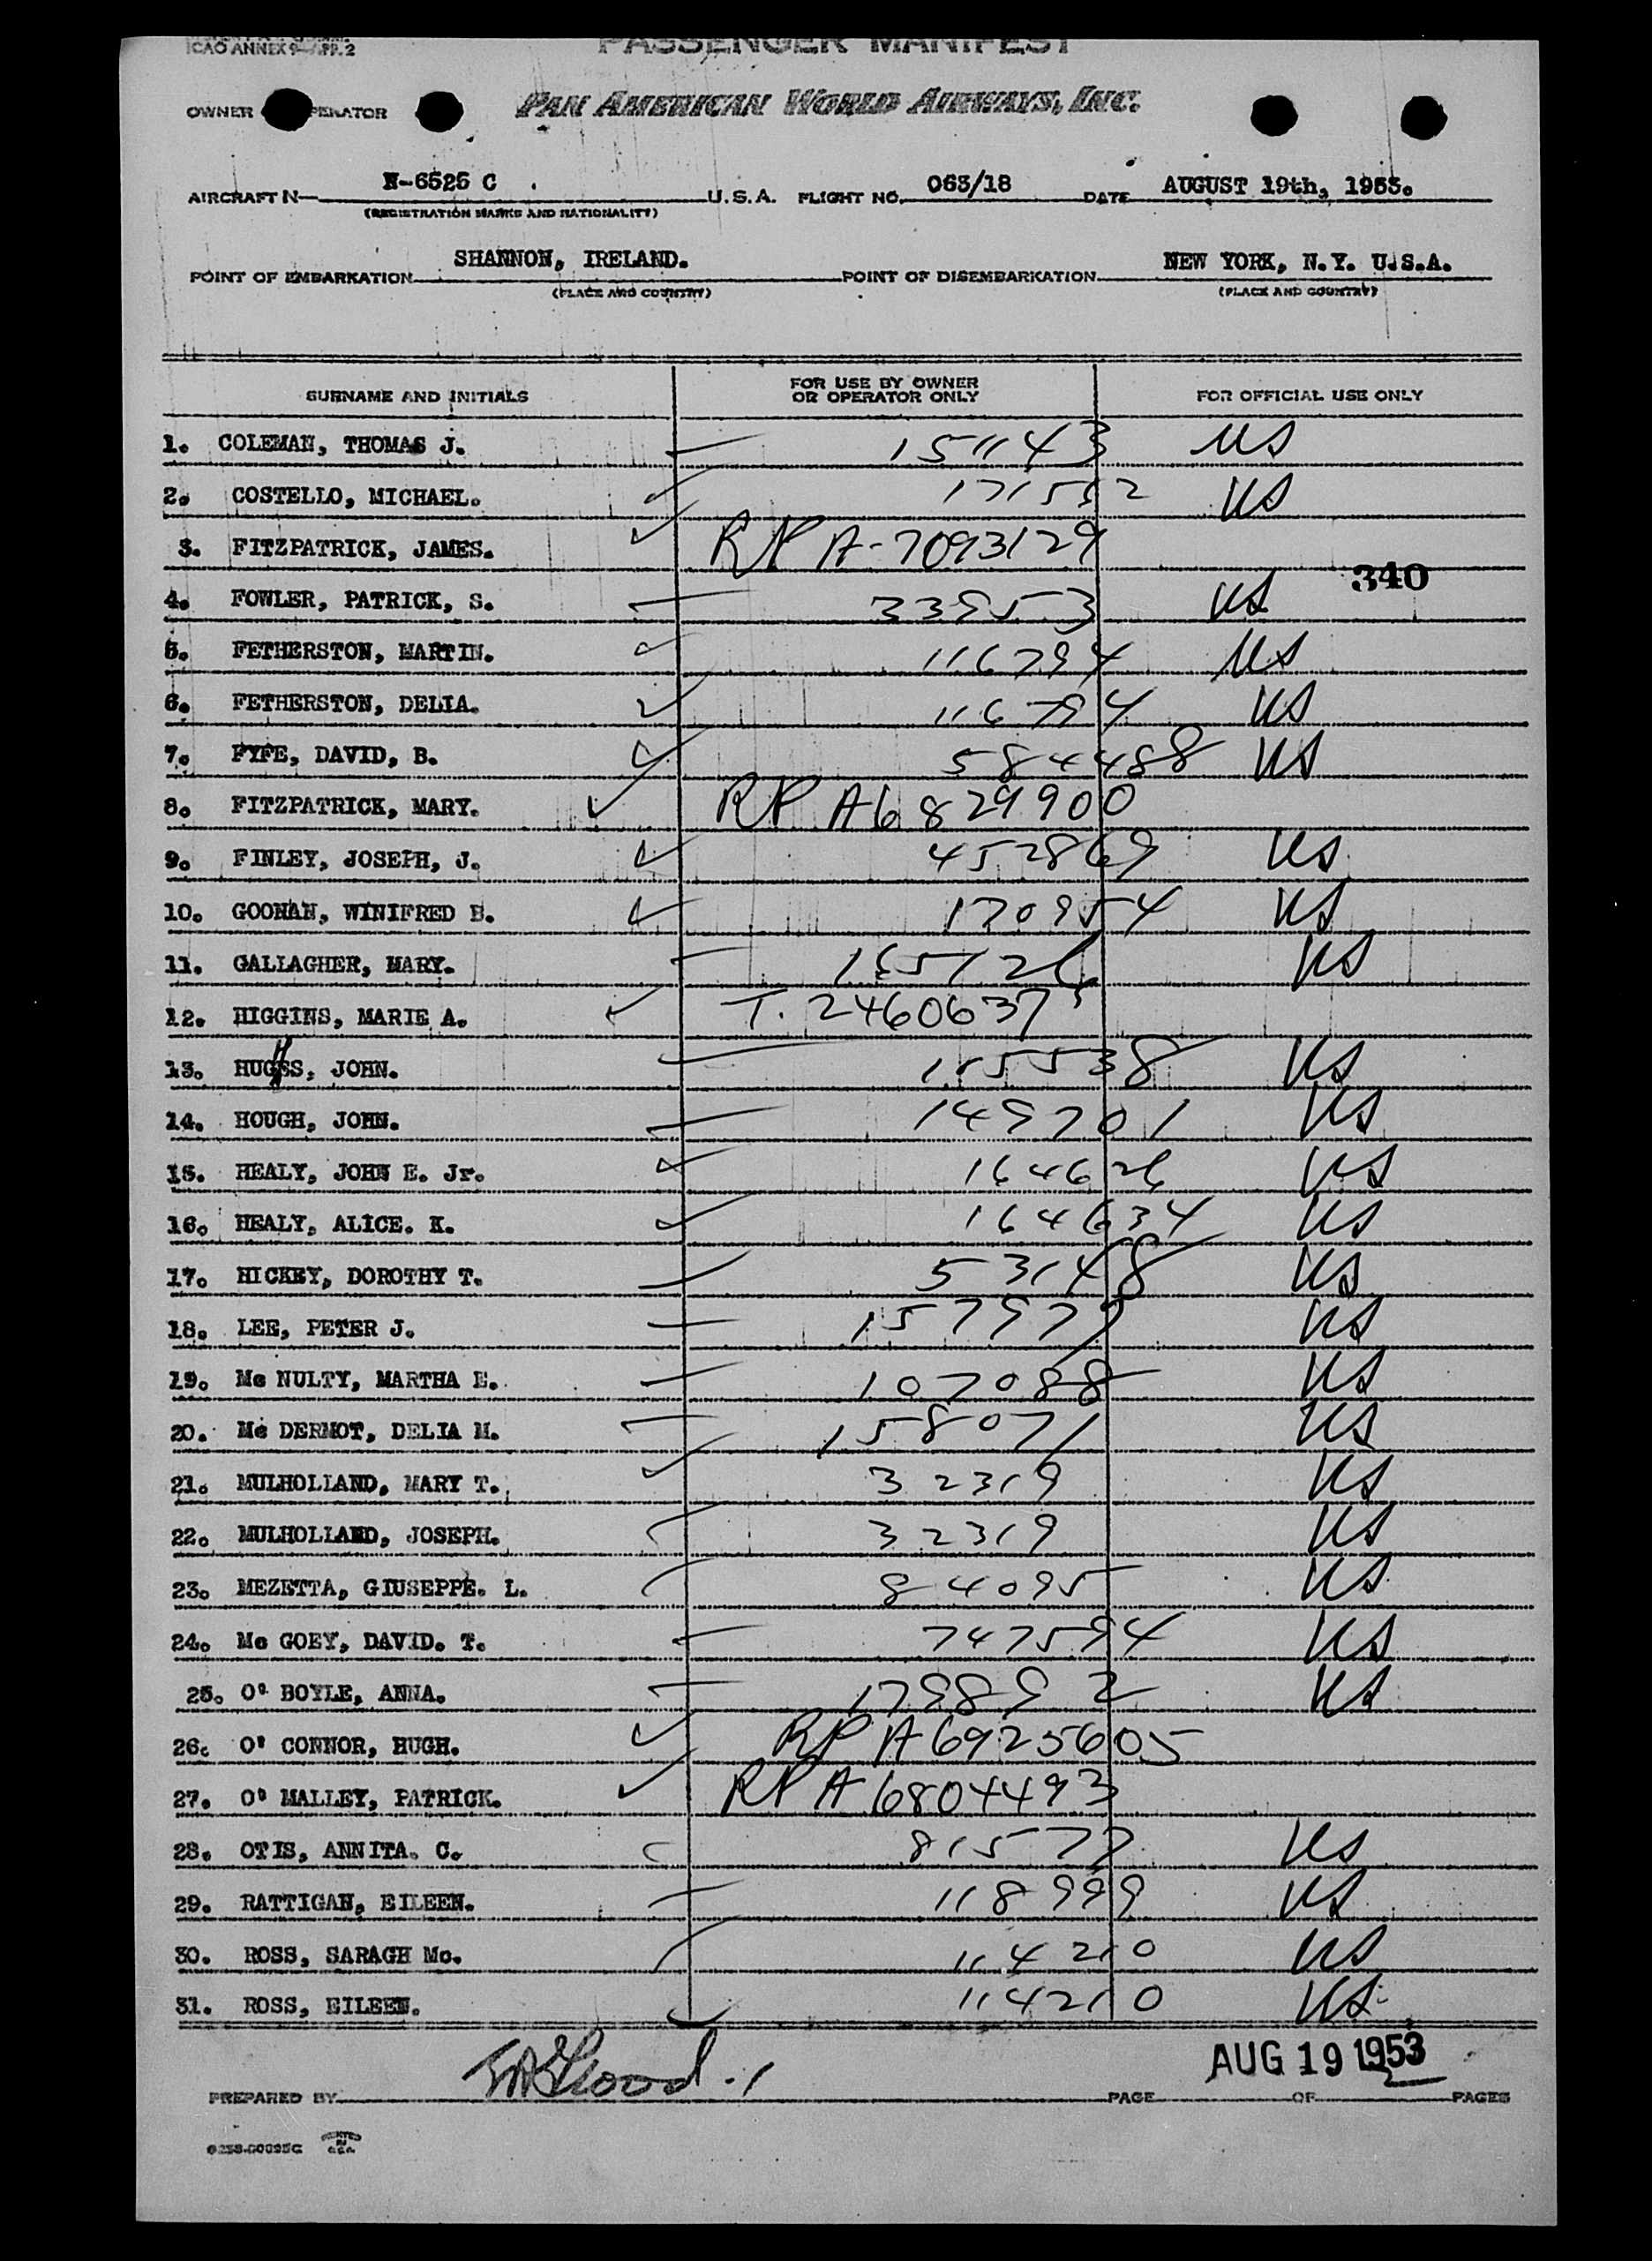 ICAO ANNEX 9—APP. 2
PASSENGER MANIFEST
OWNER OPERATOR
PAN AMERICAN WORLD AIRWAYS, INC.
AIRCRAFT N— N-6525 C . U.S.A. FLIGHT NO. 063/18 DATE AUGUST 19th, 1953.
(REGISTRATION MARKS AND NATIONALITY)
POINT OF EMBARKATION SHANNON, IRELAND. POINT OF DISEMBARKATION NEW YORK, N.Y. U.S.A.
(PLACE AND COUNTRY) (PLACE AND COUNTRY)
SURNAME AND INITIALS FOR USE BY OWNER OR OPERATOR ONLY FOR OFFICIAL USE ONLY
1. COLEMAN, THOMAS J. 151143 US
2. COSTELLO, MICHAEL. US
3. FITZPATRICK, JAMES. RP A-7093129
340
4. FOWLER, PATRICK, S. 339553 US
5. FETHERSTON, MARTIN. 116794 US
6. FETHERSTON, DELIA. 116794 US
7. FYFE, DAVID, B. 584488 US
8. FITZPATRICK, MARY. RP A6829900
9. FINLEY, JOSEPH, J. 452869 US
10. GOONAN, WINIFRED B. 170954 US
11. GALLAGHER, MARY. 165126 US
12. HIGGINS, MARIE A. T. 2460637
13. JOHN. US
14. HOUGH, JOHN. 149701 US
15. HEALY, JOHN E. Jr. 164626 US
16. HEALY, ALICE. K. 164634 US
17. HICKEY, DOROTHY T. 53148 US
18. LEE, PETER J. 157979 US
19. Mc NULTY, MARTHA E. 107088 US
20. Mc DERMOT, DELIA M. 158071 US
21. MULHOLLAND, MARY T. 32319 US
22. MULHOLLAND, JOSEPH. 32319 US
23. MEZETTA, GIUSEPPE. L. 84095 US
24. Mc GOEY, DAVID. T. 747594 US
25. O' BOYLE, ANNA. 179892 US
26. O' CONNOR, HUGH. RP A6925605
27. O' MALLEY, PATRICK. RP A6804493
28. OTIS, ANNITA. C. 81577 US
29. RATTIGAN, EILEEN. 118999 US
30. ROSS, SARAGH Mc. 114210 US
31. ROSS, EILEEN. 114210 US
AUG 19 1953
PREPARED BY PAGE OF PAGES
PRINTED IN U.S.A.